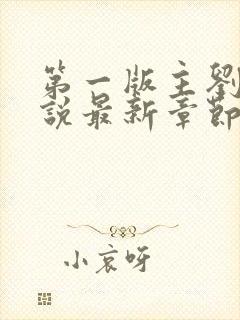 第一版主劉
說最新章節
小哀呀